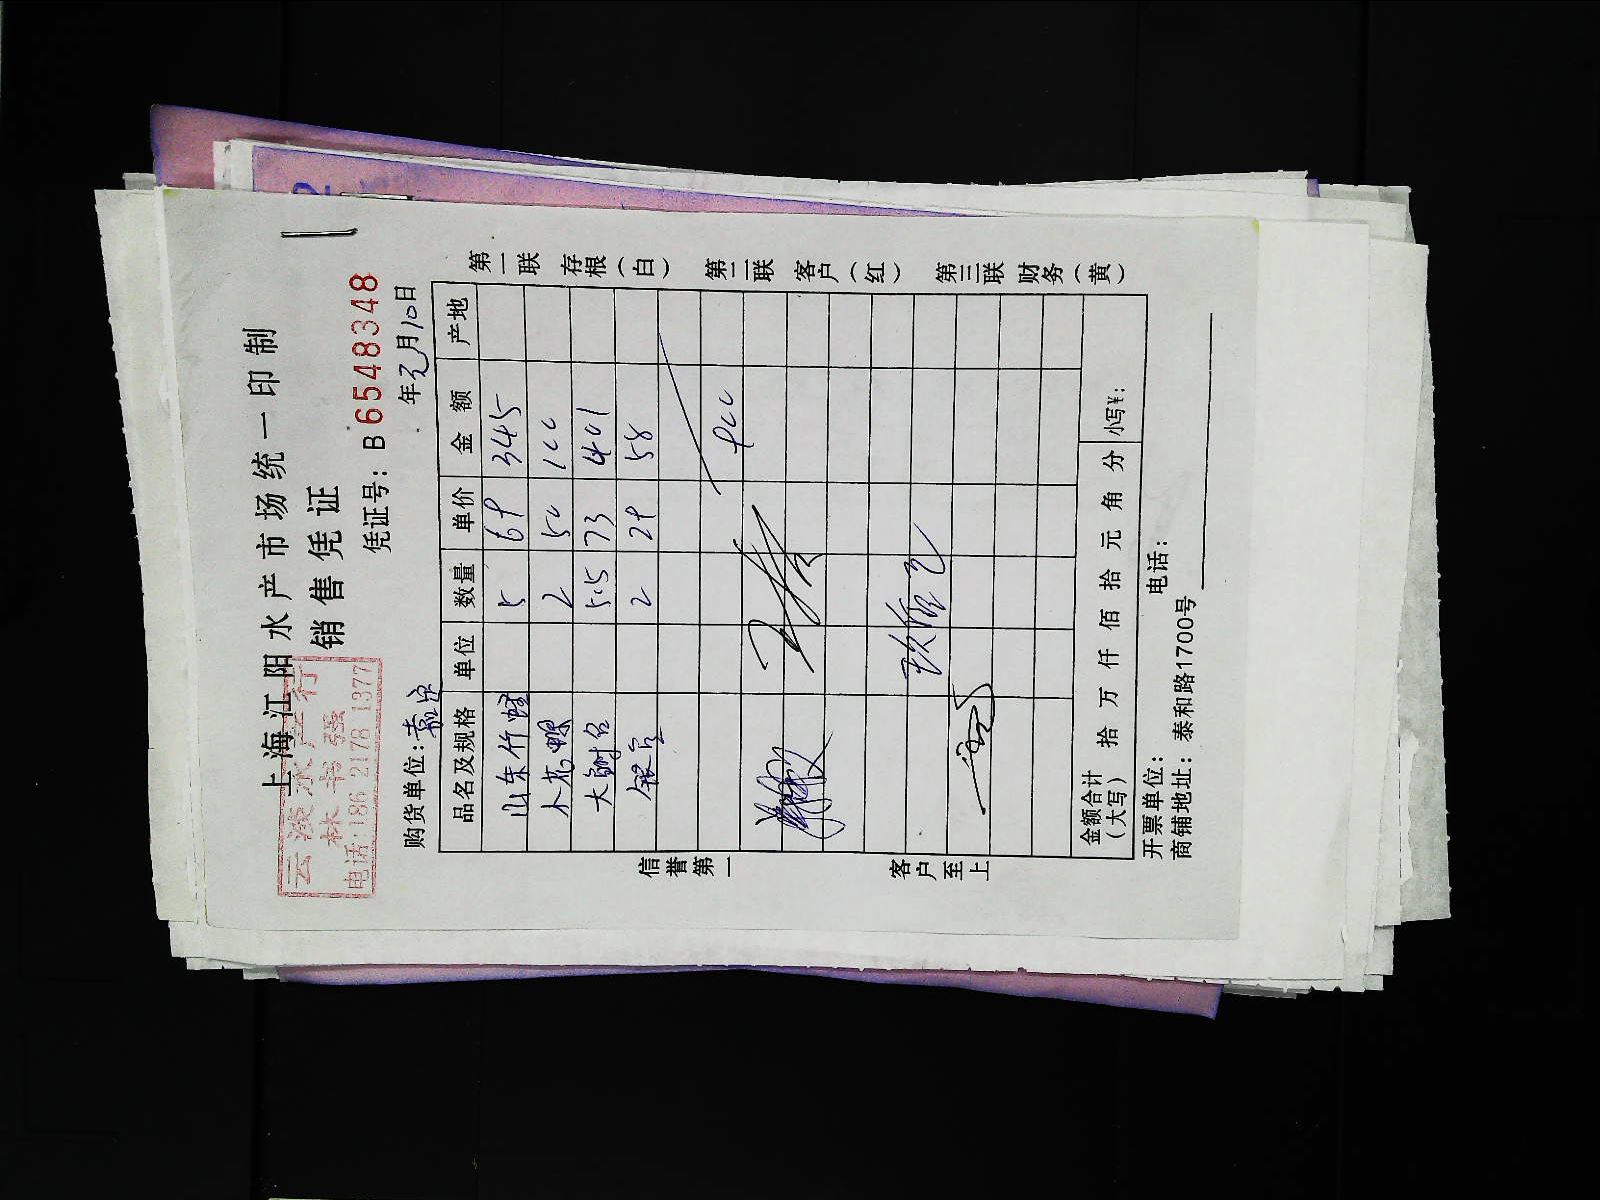 上海江阳水产市场统一印制
销售凭证
云淡水产行
林书强
电话:186 2178 1377
凭证号: B 6548348
购货单位: 年元月10日
品名及规格 单位 数量 单价 金额 产地
山东竹蛏 5 69 345
木花螺 2 50 100
大鲍 5.5 73 401
银 2 29 58
900
金额合计(大写) 拾 万 仟 佰 拾 元 角 分 小写¥:
开票单位: 电话:
商铺地址: 泰和路1700号
信誉第一
客户至上
第一联 存根(白) 第二联 客户(红) 第三联 财务(黄)